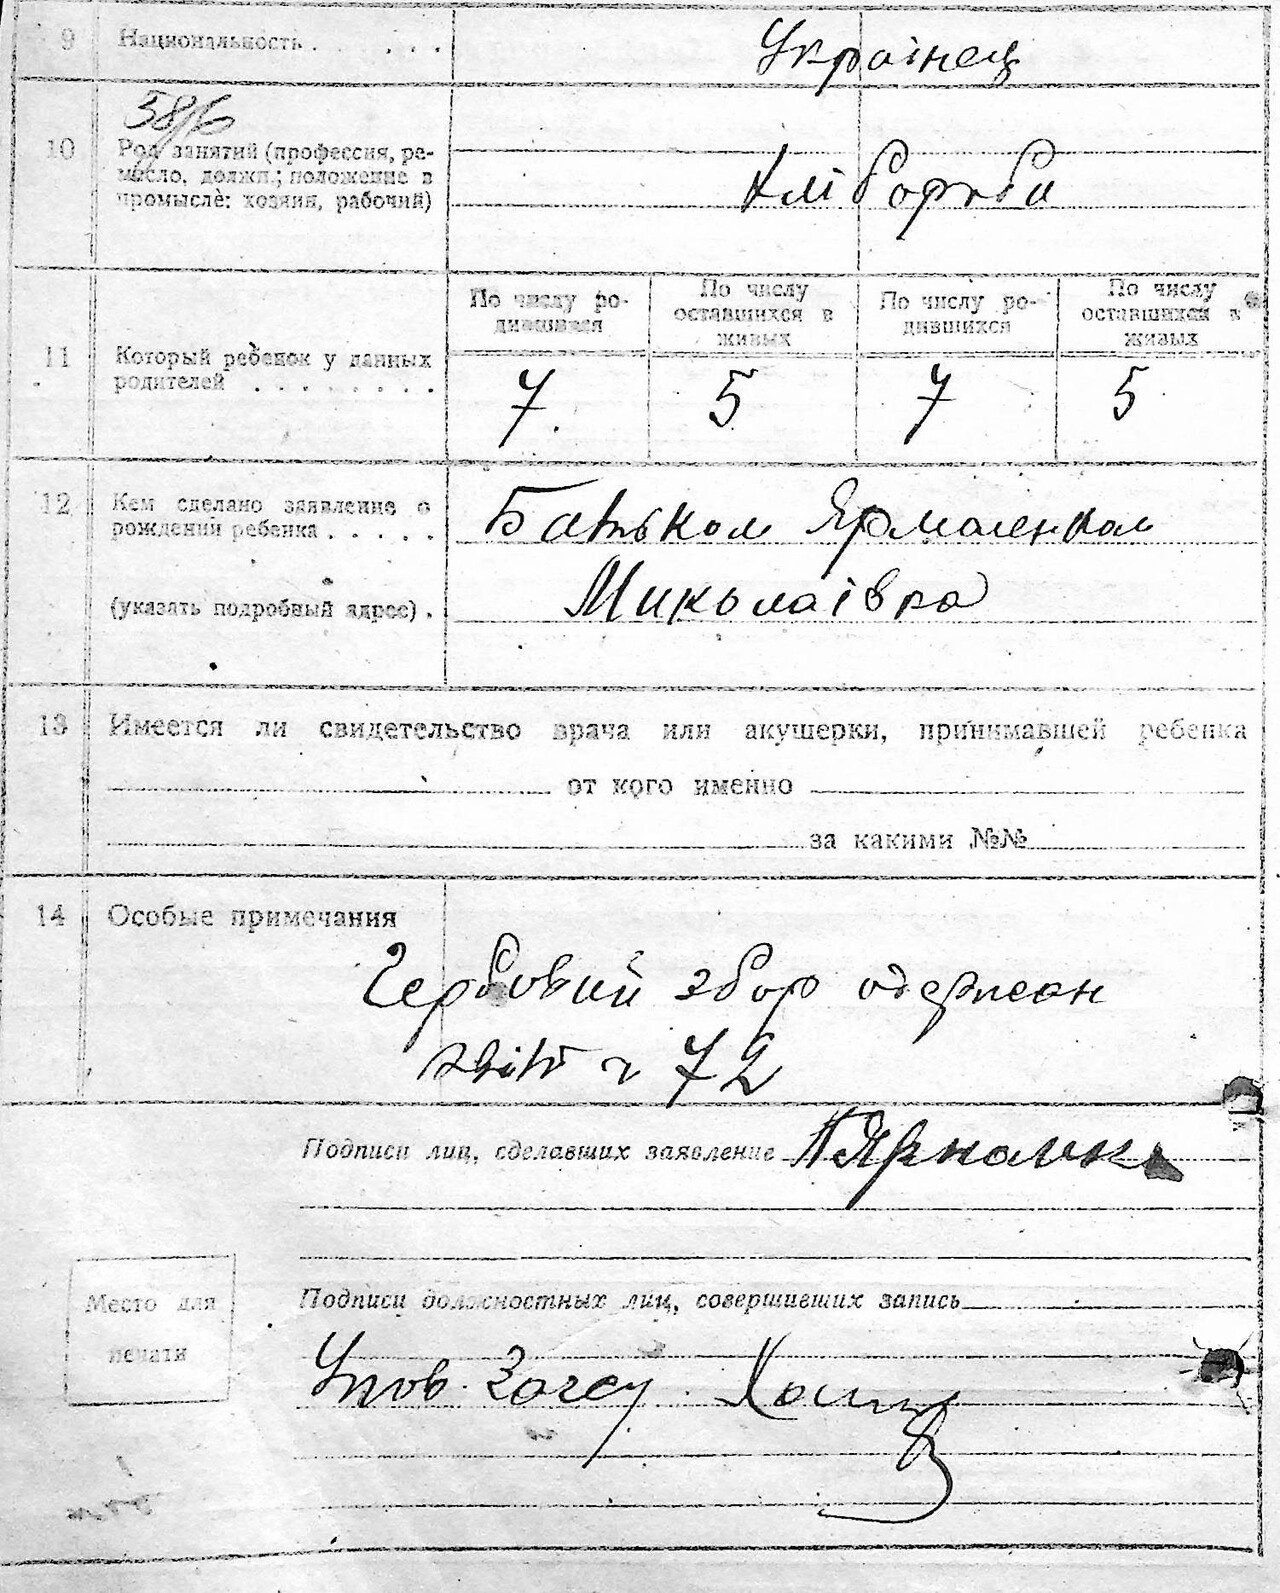 9 Национальность . . . . . . Українец
58/6
10 Род занятий (профессия, ре-
месло, должн.; положение в
промысле: хозяин, рабочий)
Хліборобы
По числу ро-
дившихся
По числу
оставшихся в
живых
По числу ро-
дившихся
По числу
оставшихся в
живых
11 Который ребенок у данных
родителей . . . . . . . .
7. 5 7 5
12 Кем сделано заявление о
рождении ребенка . . . . .
Батьком Ярмоленком
(указать подробный адрес) .
Миколаївка
13 Имеется ли свидетельство врача или акушерки, принимавшей ребенка
от кого именно
за какими №№
14 Особые примечания
Гербовий збор одержан
72
Подписи лиц, сделавших заявление
Подписи должностных лиц, совершивших запись
Место для
печати
Упов. Загсу